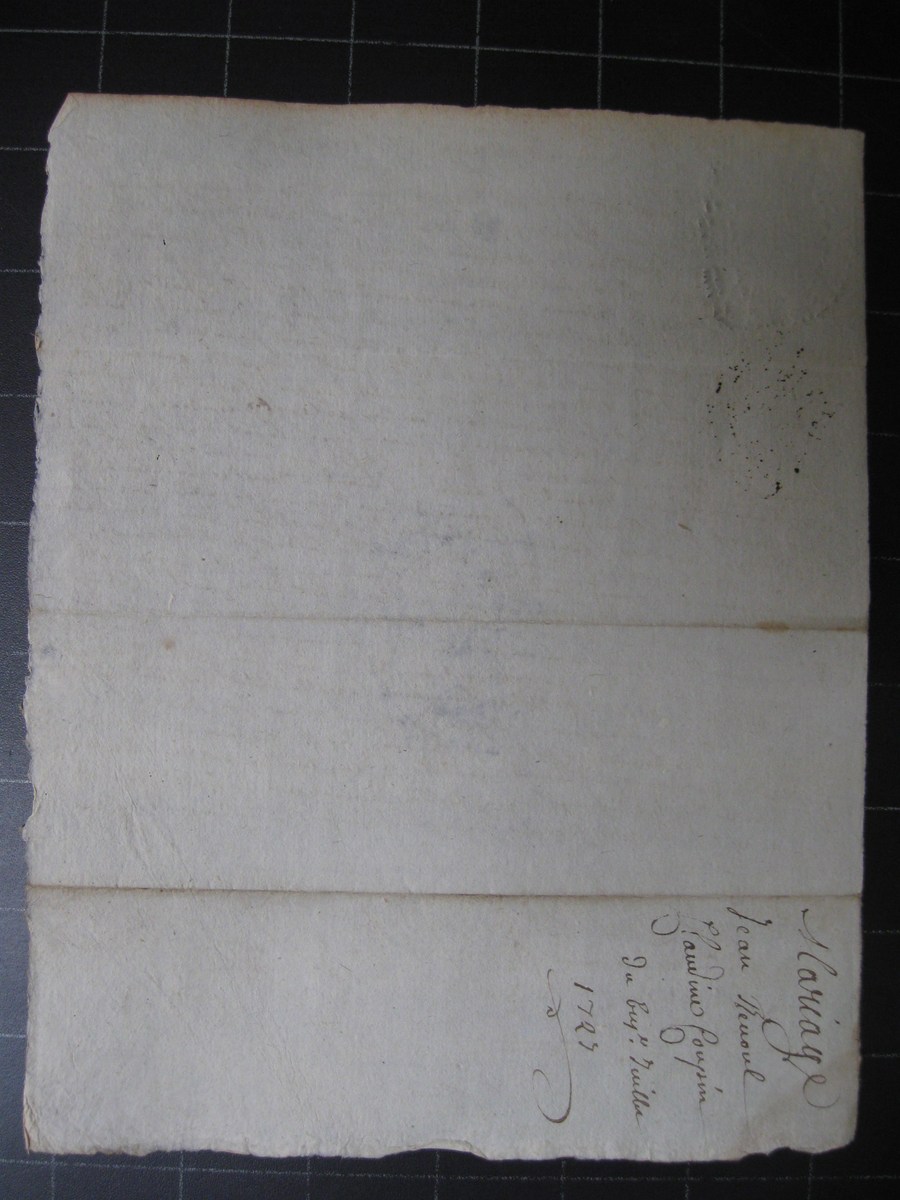 Mariage
Jean Renoul
Claudine Coupin
du Juillet
1727